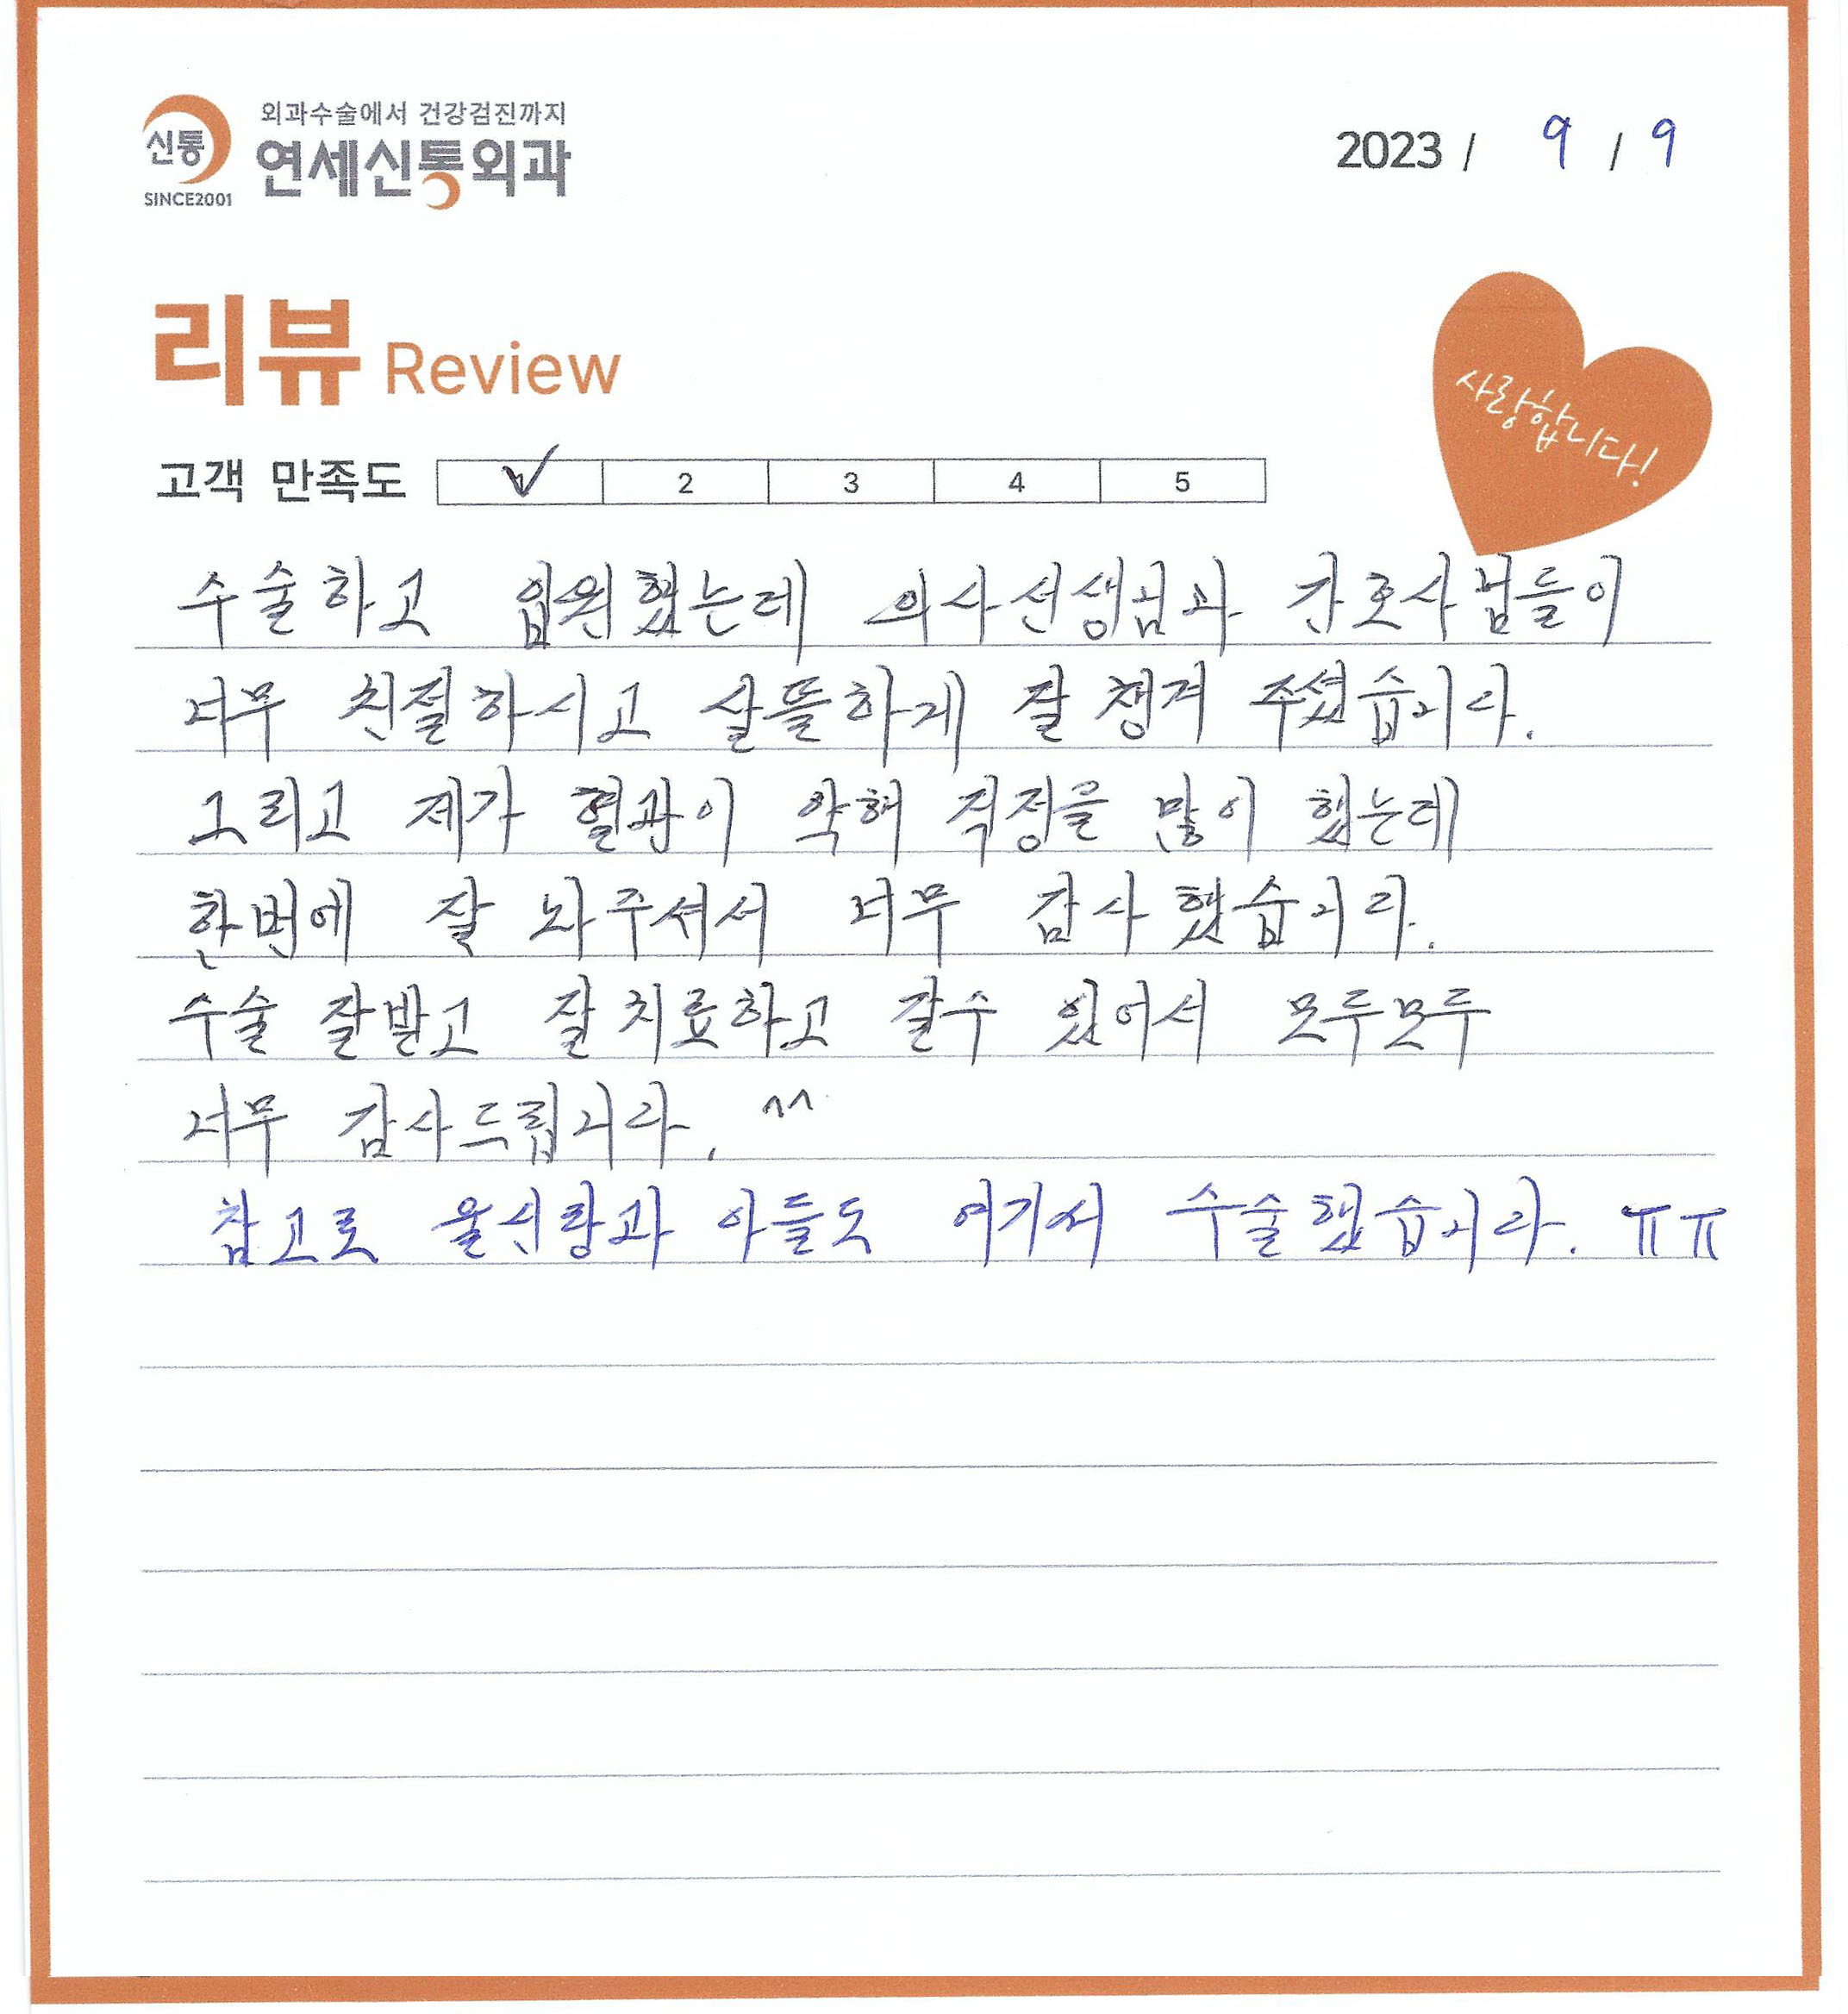 외과수술에서 건강검진까지
신통
연세신통외과
SINCE2001
2023 / 9 / 9
리뷰 Review
사랑합니다!
고객 만족도 1 2 3 4 5
수술하고 입원했는데 의사선생님과 간호사님들이
너무 친절하시고 살뜰하게 잘 챙겨 주셨습니다.
그리고 제가 혈관이 약해 걱정을 많이 했는데
한번에 잘 놔주셔서 너무 감사했습니다.
수술 잘받고 잘치료하고 갈수 있어서 모두모두
너무 감사드립니다. ^^
참고로 울신랑과 아들도 여기서 수술했습니다. ㅠㅠ